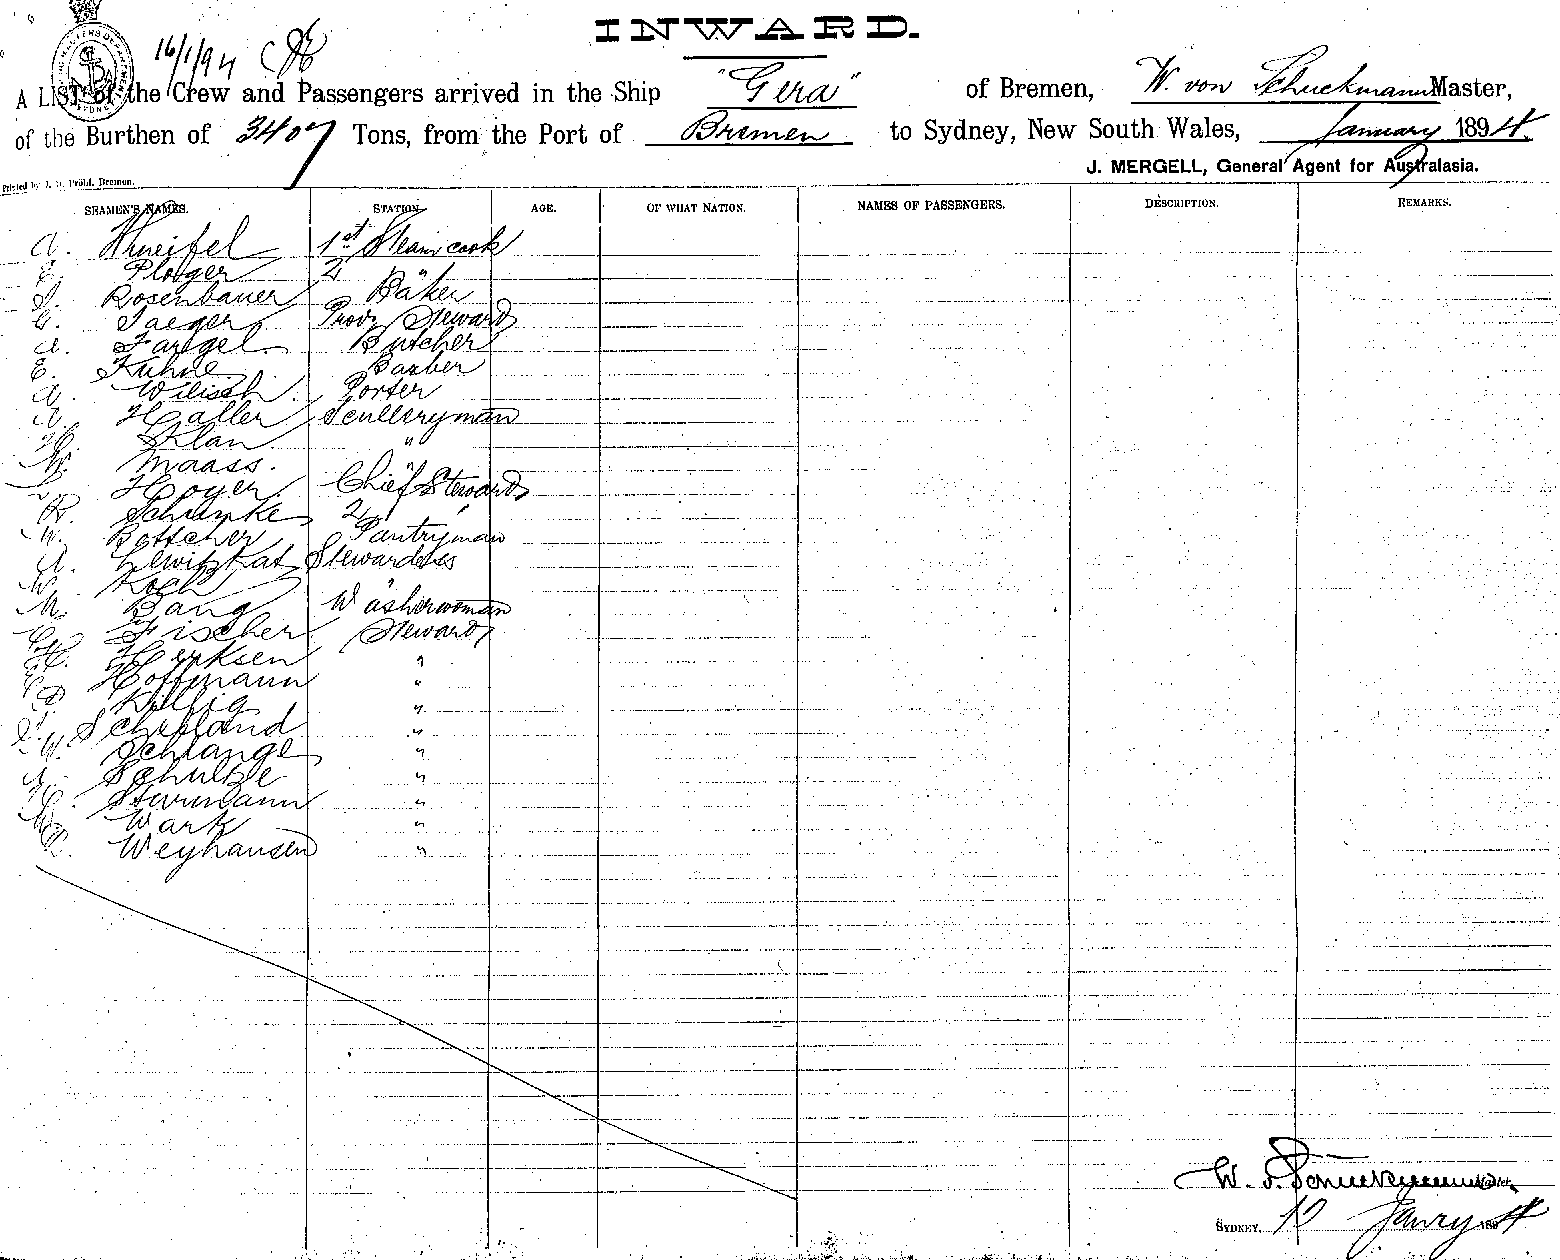 INWARD.
16/1/94
A LIST of the Crew and Passengers arrived in the Ship "Gera" of Bremen, W. von Schuckmann Master,
of the Burthen of 3407 Tons, from the Port of Bremen to Sydney, New South Wales, January 1894.
J. MERGELL, General Agent for Australasia.
Printed by Pröhl. Bremen.
SEAMEN'S NAMES. STATION AGE. OF WHAT NATION. NAMES OF PASSENGERS. DESCRIPTION. REMARKS.
A. Kneifel 1st Steam cook
Plöger 2 "
Rosenbauer Baker
Jaeger Prov. Steward
Fargel Butcher
E. Kuhne Barber
A. Wilisch Porter
Haller Sculleryman
Klan "
Maass. "
Hoyer. Chief Steward
R. Schunke 2 "
Bottcher Pantryman
A. Lewitzkat Stewardess
Koch "
M. Bang Washerwoman
Fischer Steward
Henksen "
Hoffmann "
Killig "
"
W. Schlange "
Schultze "
"
Wark "
Weyhausen "
W. v. Schuckmann Master.
SYDNEY, 10 Janry 1894